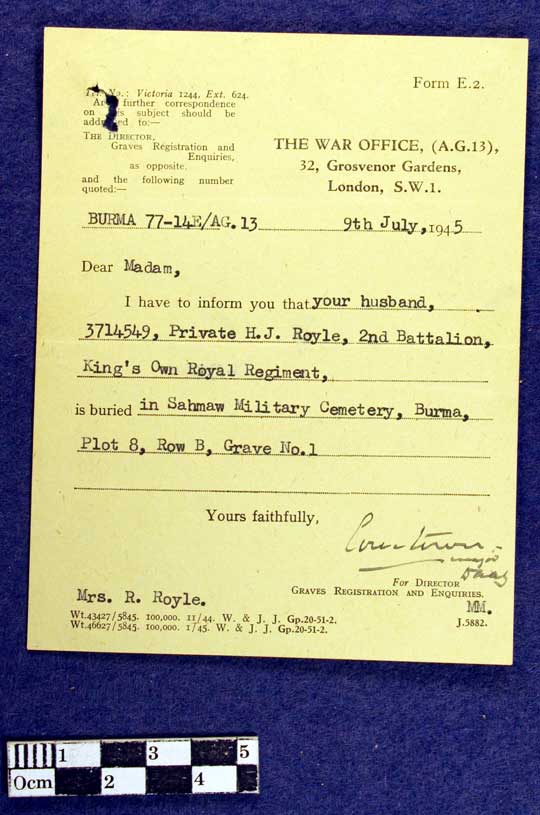 Tel. No.: Victoria 1244, Ext. 624.
Any further correspondence
on this subject should be
addressed to:—
THE DIRECTOR,
Graves Registration and
Enquiries,
as opposite.
and the following number
quoted:—
Form E.2.
THE WAR OFFICE, (A.G.13),
32, Grosvenor Gardens,
London, S.W.1.
BURMA 77-14E/AG.13 9th July, 1945
Dear Madam,
I have to inform you that your husband,
3714549, Private H.J. Royle, 2nd Battalion,
King's Own Royal Regiment,
is buried in Sahmaw Military Cemetery, Burma,
Plot 8, Row B, Grave No.1
Yours faithfully,
Major
For DIRECTOR
GRAVES REGISTRATION AND ENQUIRIES.
MM.
Mrs. R. Royle.
Wt.43427/5845. 100,000. 11/44. W. & J. J. Gp.20-51-2.
Wt.46627/5845. 100,000. 1/45. W. & J. J. Gp.20-51-2.
J.5882.
0cm 1 2 3 4 5